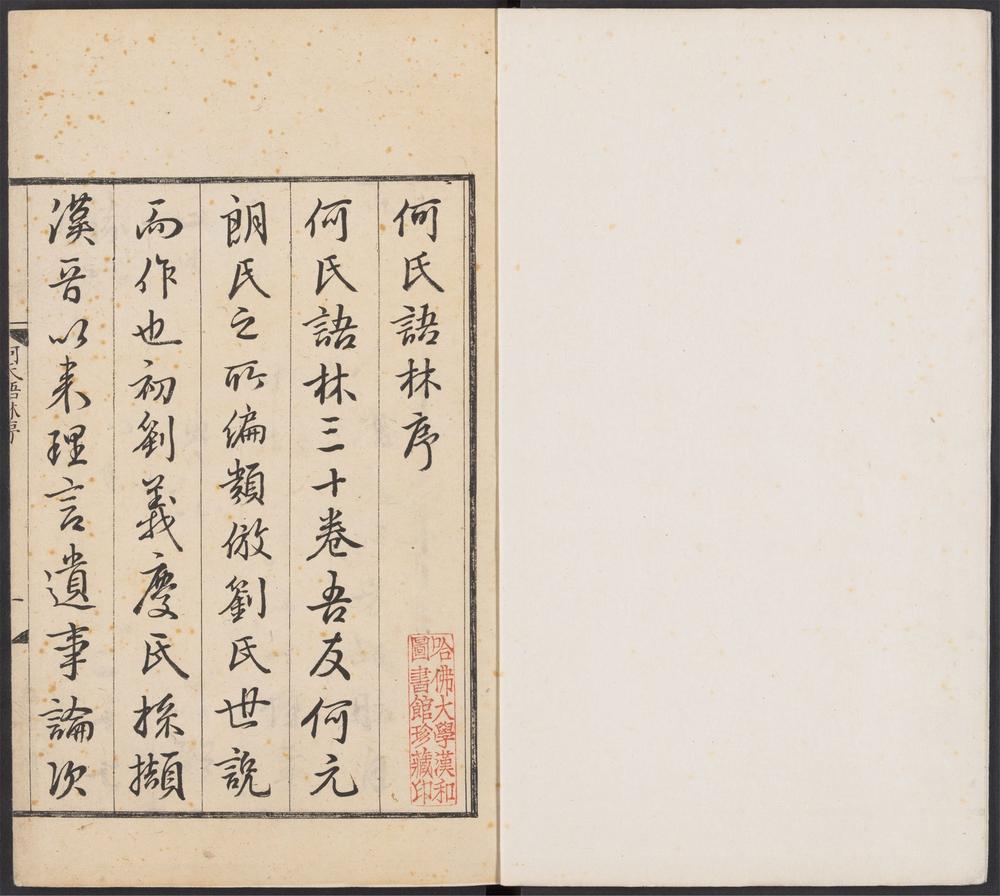 何氏語林序
何氏語林三十卷吾友何元
朗氏之所編類倣劉氏世說
而作也初劉義慶氏採擷
漢晉以来理言遺事論次
何氏語林序
一
哈佛大學漢和
圖書館珍藏印